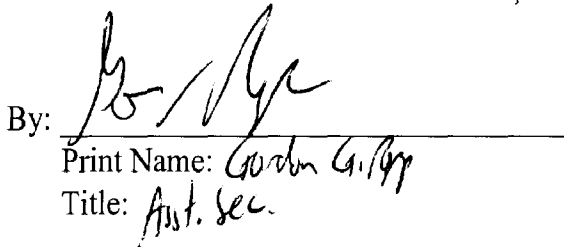 By:
Print Name: Gordon G.
Title: Asst. Sec.